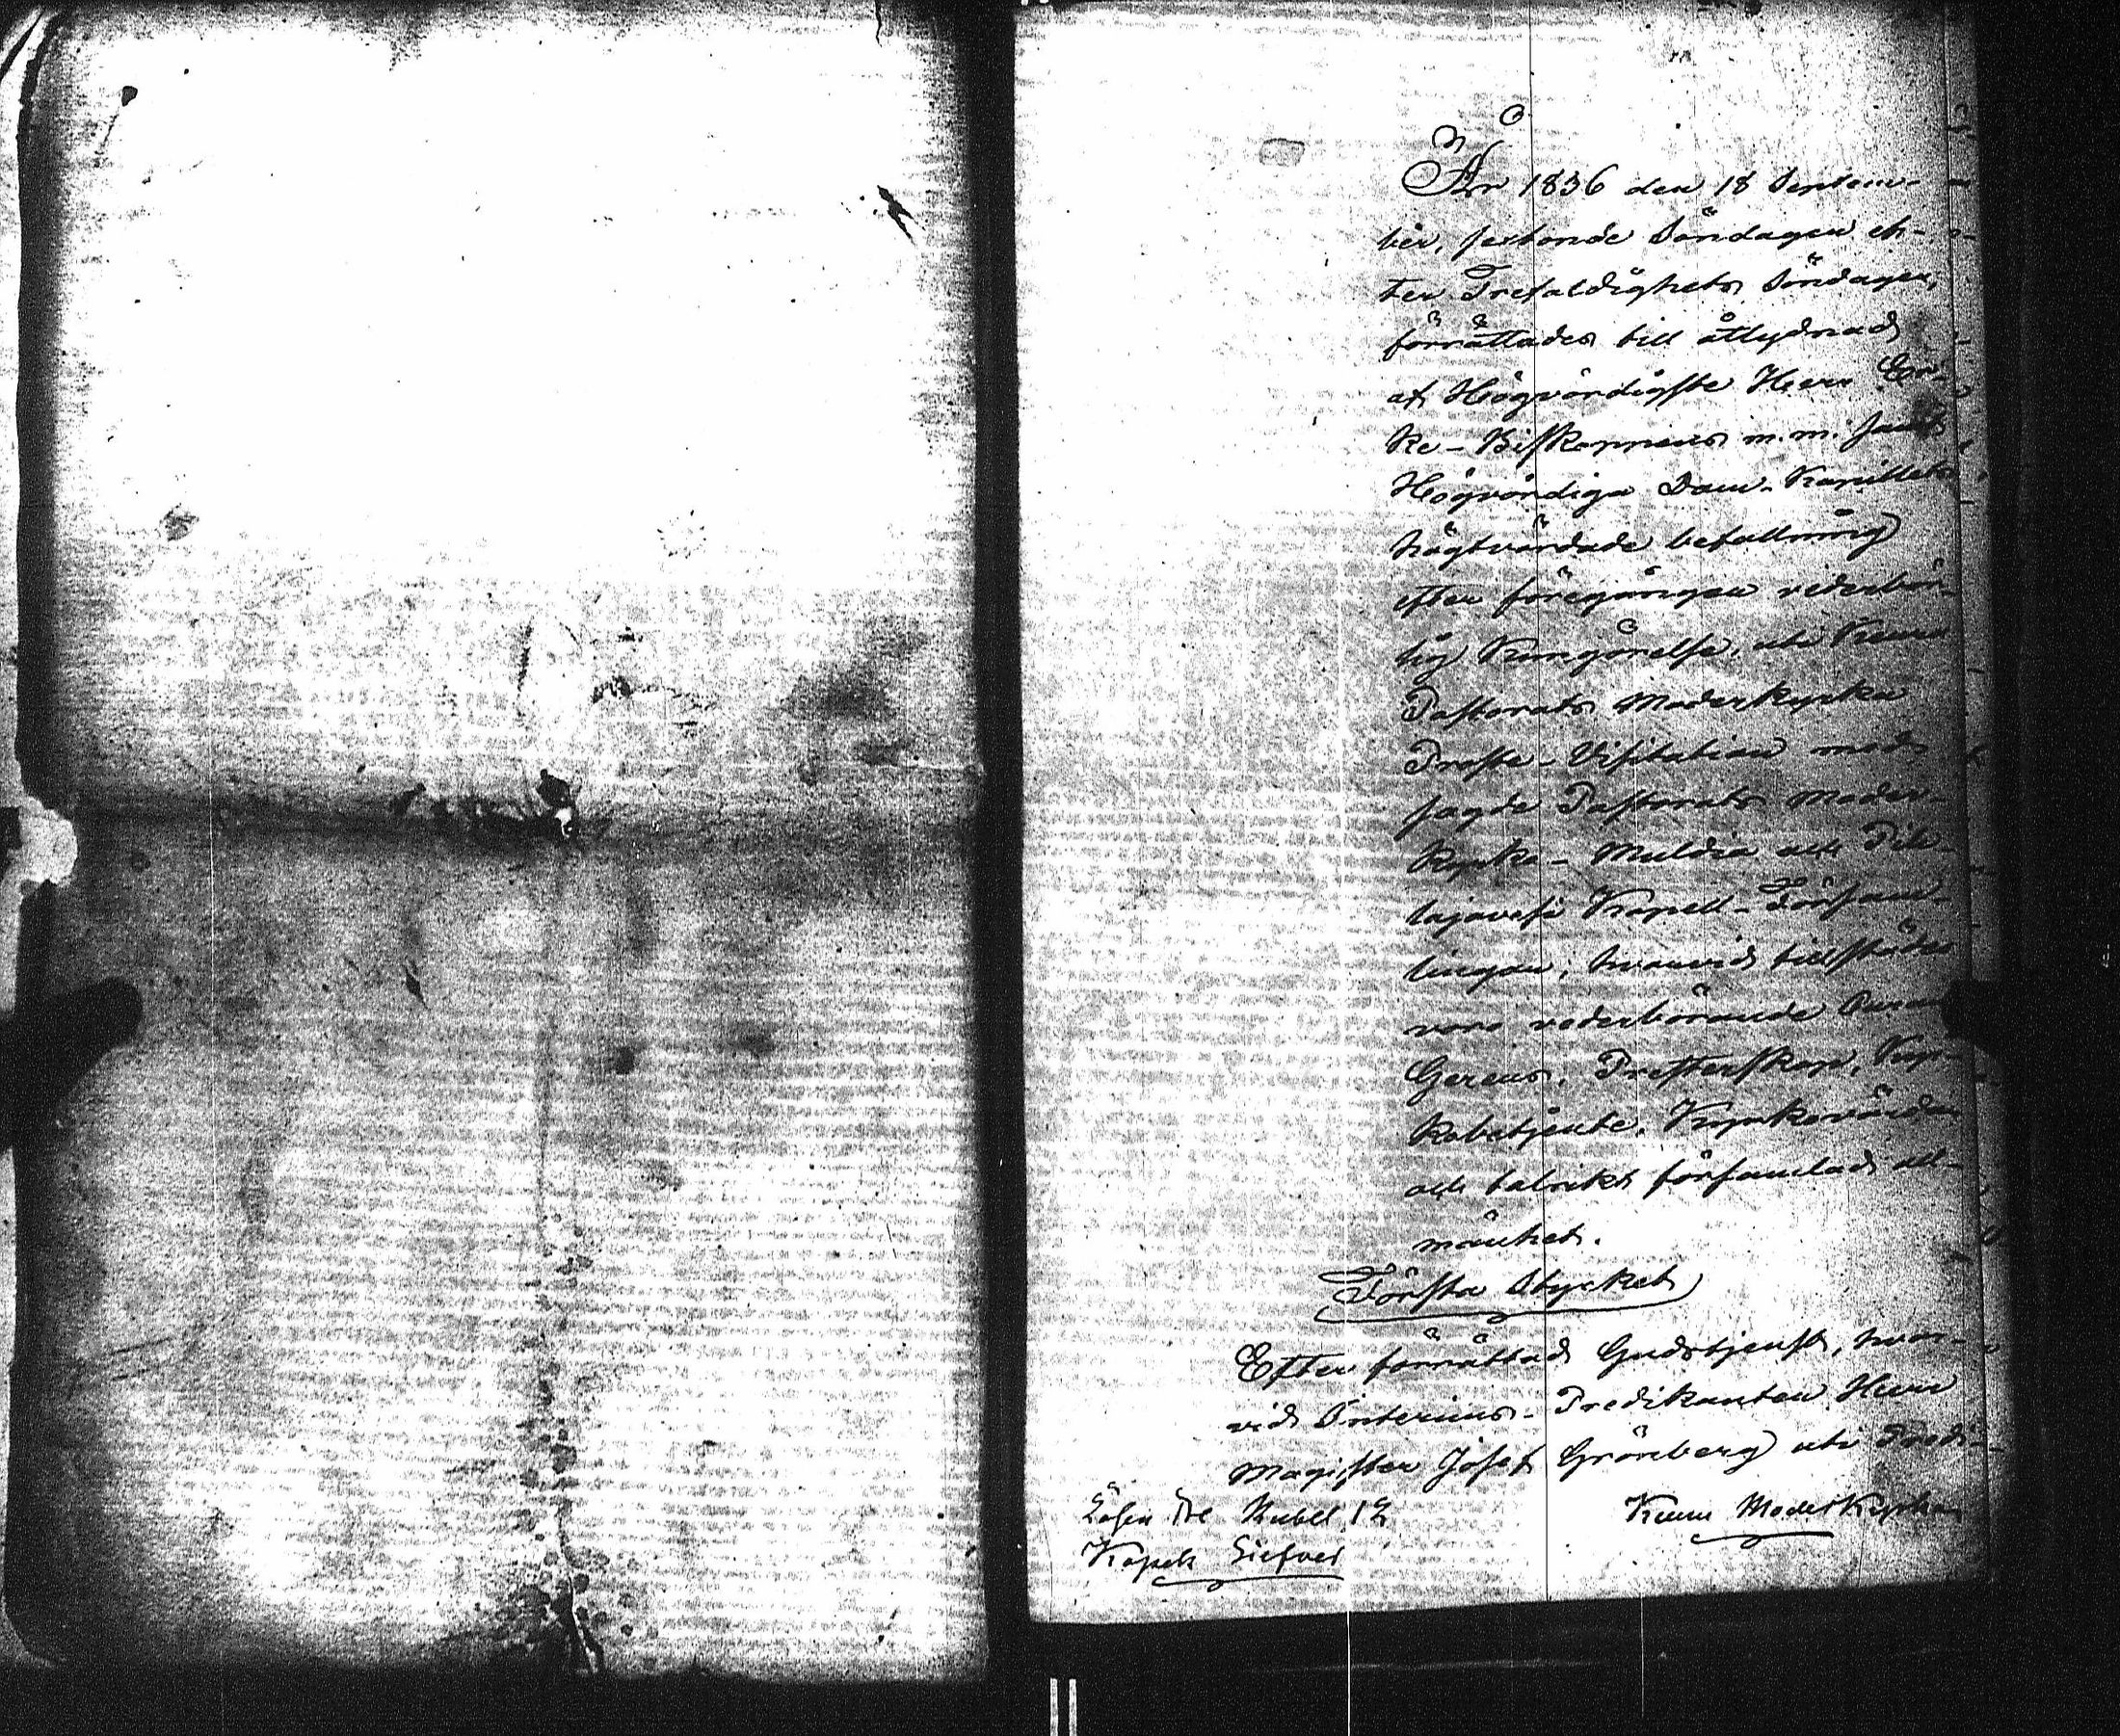 År 1836 den 18 Septem-
ber, sextonde Söndagen ef-
ter Trefaldighets Söndagen,
förrättades till åtlydnad
af Högvördigste Herr Er-
ke-Biskoppens m.m. samt
Högvördiga Dom-Kapitlets
högtvördade befallning
efter föregången vederbör-
lig Kungörelse, uti Kumo
Pastorats Moderkyrka
Proste-Visitation med
sagde Pastorats Moder-
kyrka- Muldia och
Kapell-Försam-
lingar; hvarvid tillstädes
voro vederbörande
Gerens, Presterskap, Kyr-
kobetjente, Kyrkovärdar
och talrikt församlad all-
mänhet.
Första Stycket
Efter förrättad Gudstjenst, hvar-
vid Interims-Predikanten Herr
Magister Josef Grönberg uti Predi-
Lösen Rubel 12
Kumo Moderkyrka
Kopek Silfver